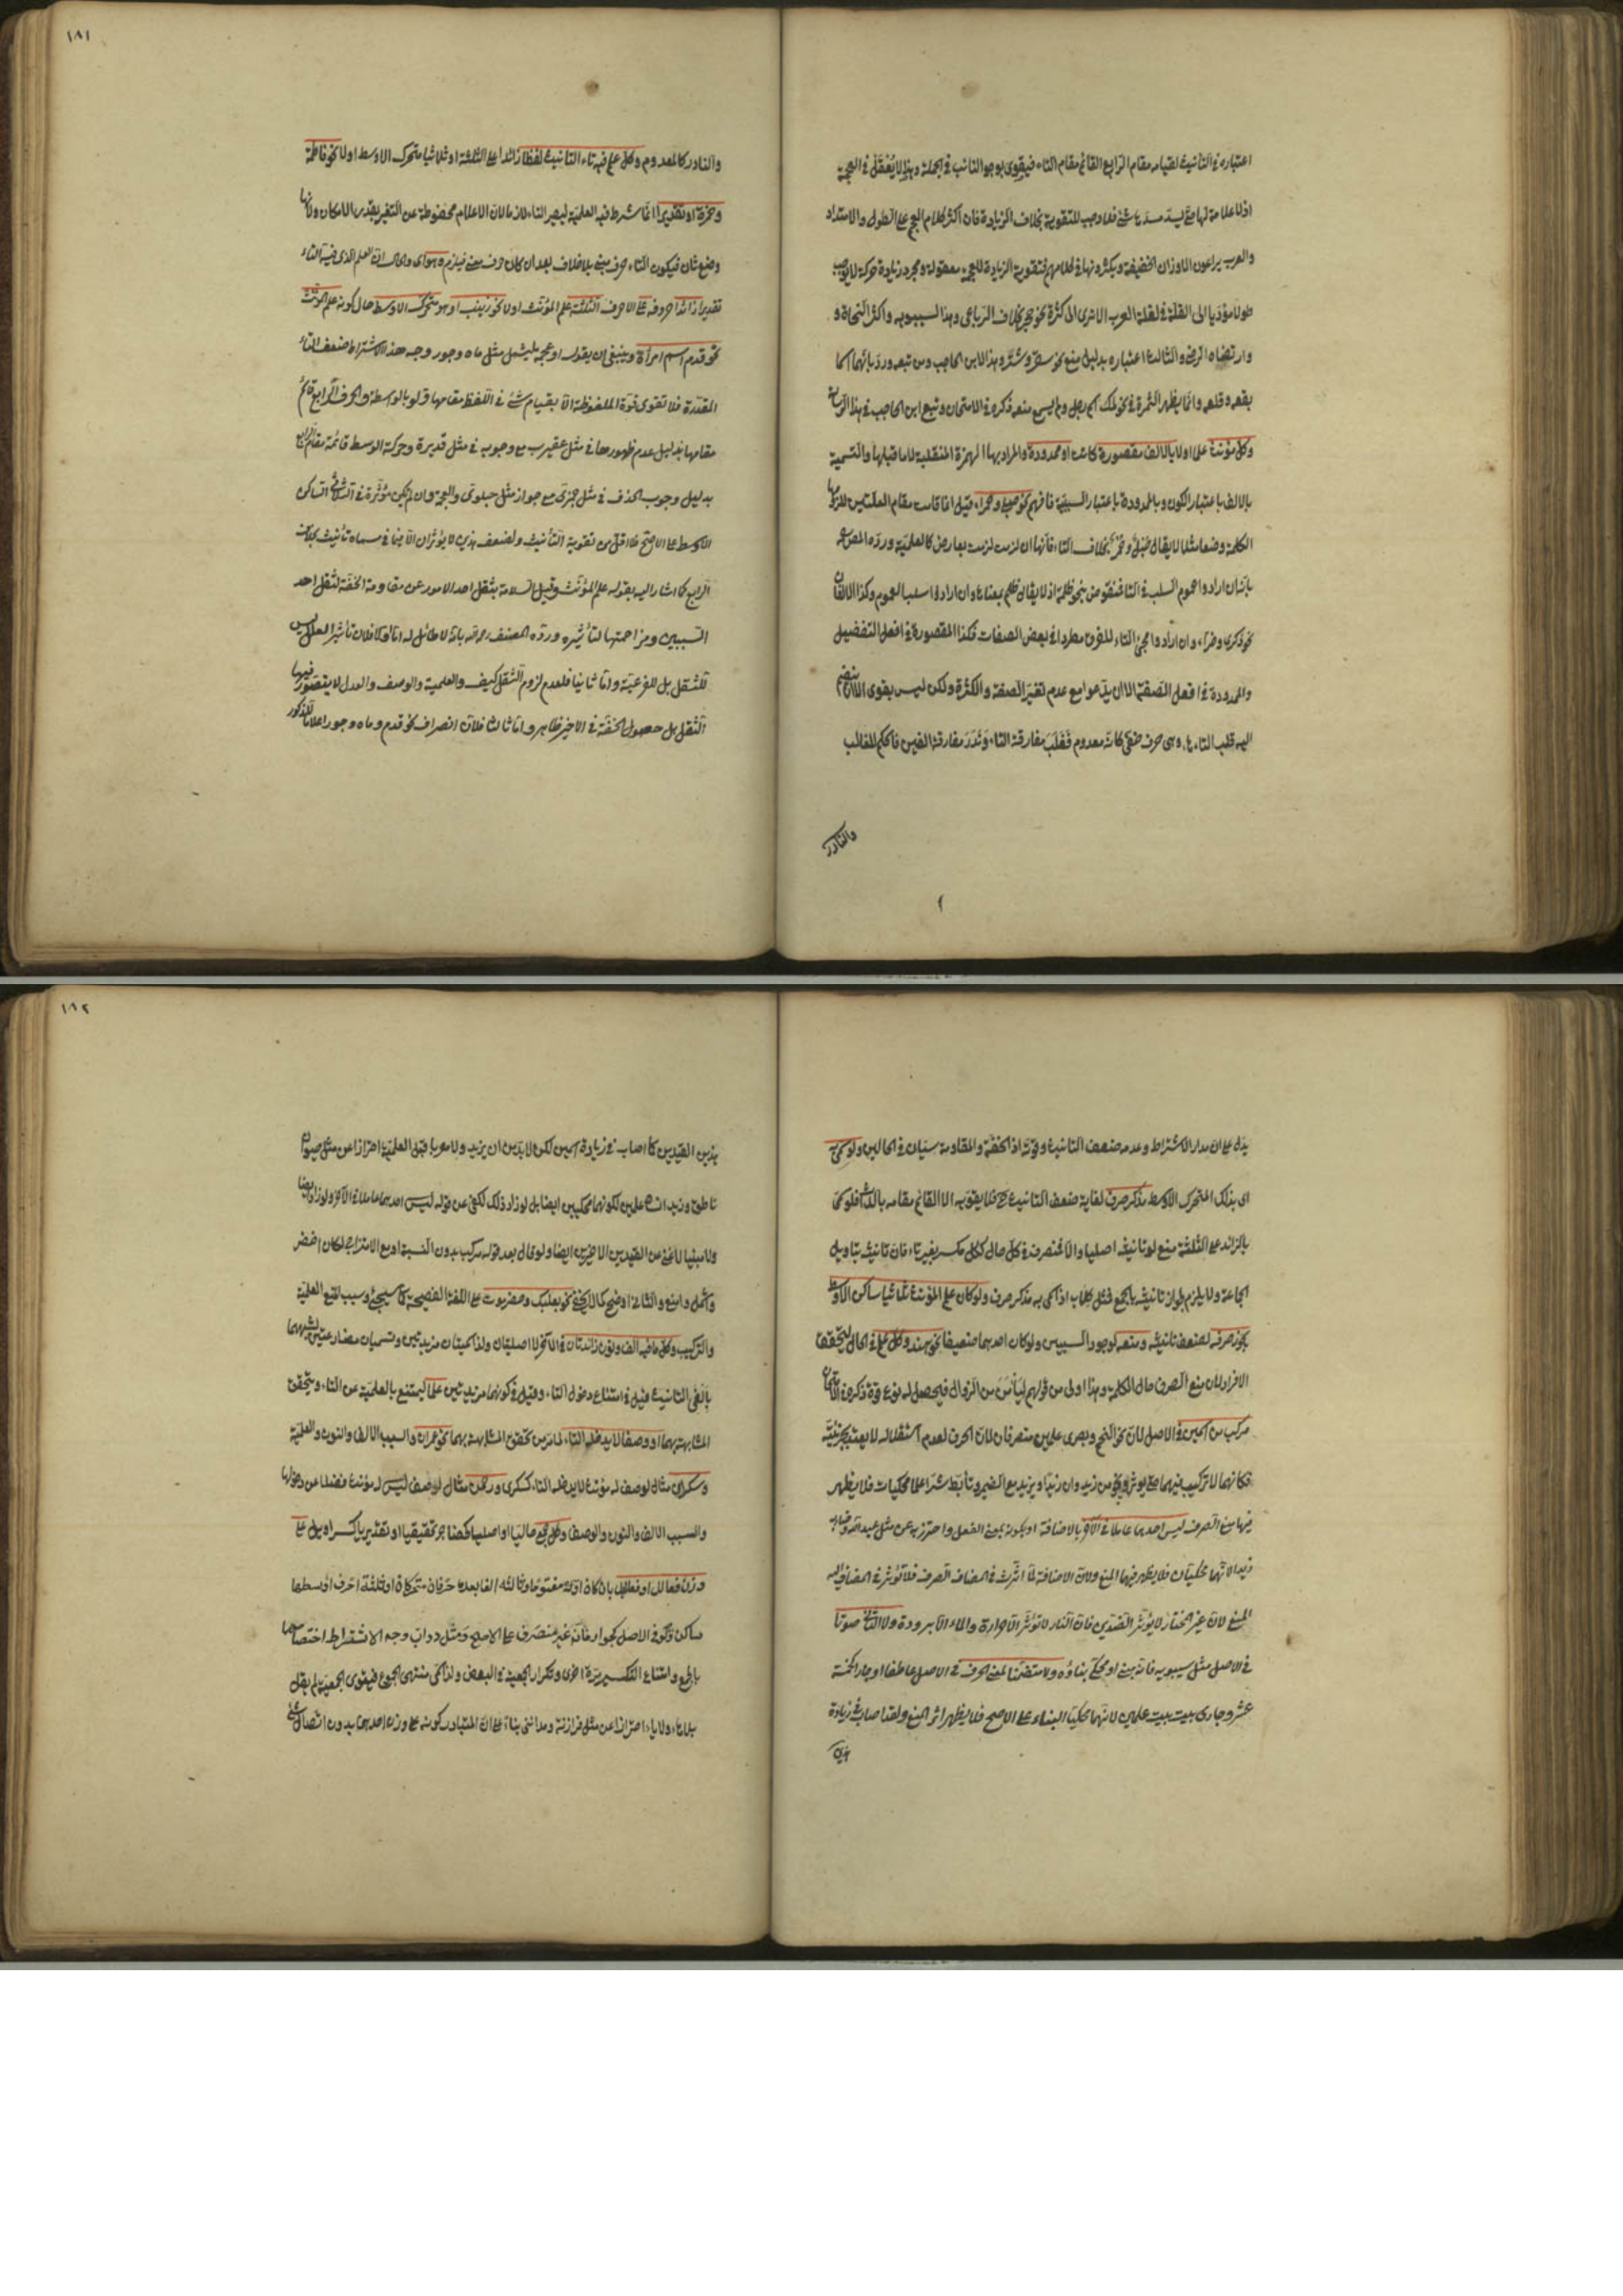 اعتباره في التأنيث لقيامه مقام الرابع القائم مقام التاء فيقوى بوجود النائب في الجملة وهذا لا يعقل في العجمة
اذ لا علامة لها حتى يسد مسدها شئ فلا وجه للتقوية بخلاف الزيادة فان اكثر كلام العجم على الطول والامتداد
والعرب يراعون الاوزان الخفيفة ويكثرونها في كلامهم فتقوية الزيادة للعجمة معقولة ومجرد زيادة حركة لا يوجب
طولا مؤديا الى القلة في لغة العرب الاخرى الى كثرة نحو بخلاف الرباعي وهذا لسيبويه واكثر النحاة و
وارتضاه الرضي والثالث اعتباره بدليل منع نحو سقر وشتر وهذا لابن الحاجب ومن تبعه ورد بانهما اسما
بقعة وقلعة وانما يظهر الثمرة في نحو لمك اسم رجل ولم يسمع منعه ذكره في الامتحان وتبع ابن الحاجب في هذا
وكل مؤنث علما او لا بالالف مقصورة كانت او ممدودة والمراد بها الهمزة المنقلبة لا ما قبلها والتسمية
بالالف باعتبار الكون وبالممدودة باعتبار السببية فافهم نحو حبلى وحمراء قيل انما قامت مقام العلتين للزومها
الكلمة وضعا مثلا لا يقال حبل وحمر بخلاف التاء فانها ان لزمت لزمت بعارض كالعلمية ورده المص
بانهم ان ارادوا عموم السلب في التاء فمنقوض بنحو ظلمة اذ لا يقال ظلم بمعناها وان ارادوا سلب العموم وكذا الالفان
نحو ذكرى وضراء وان ارادوا مجئ التاء للفرق مطردا في بعض الصفات فكذا المقصورة في افعل التفضيل
والممدودة في افعل الصفة الا ان يدعوا مع عدم تغير الصفة والكثرة ولكن ليس بقوى الا ان ينضم
اليه قلب التاء هاء وهي حرف خفي كانه معدوم فغلب مفارقة التاء وندر مفارقة الفين فالحكم للغالب
والنادر
١٨١
والنادر كالمعدوم وكل علم فيه تاء التأنيث لفظا زائدا على الثلثة او ثلاثيا متحرك الاوسط او لا نحو فاطمة
وحمزة او تقديرا انما شرط فيه العلمية ليصير التاء لازما لان الاعلام محفوظة عن التغير بقدر الامكان ولانها
وضع ثان فيكون التاء حرف مبنى بلا خلاف بعد ان كان حرف معنى فيلزم وهو اي والحال ان العلم الذي فيه التاء
تقديرا زائدا حروفه على الاحرف الثلثة علم المؤنث او لا نحو زينب او هو متحرك الاوسط حال كونه علم المؤنث
نحو قدم اسم امرأة وينبغي ان يقول او عجمة ليشمل مثل ماه وجور وجه هذا الاشتراط ضعف التاء
المقدرة فلا تقوى قوة الملفوظة الا بقيام شئ في اللفظ مقامها ولو بالواسطة والحرف الرابع قائم
مقامها بدليل عدم ظهورها في مثل عقيرب مع وجوبه في مثل قديرة وحركة الوسط قائمة مقام الرابع
بدليل وجوب الحذف في مثل جمزى مع جواز مثل حبلوى والعجمة وان لم يكن مؤثرة في الثلاثي الساكن
الاوسط على الاصح فلا اقل من تقوية التأنيث ولضعف هذين لا يؤثران الا فيما في مسماه تأنيث بخلاف
الرابع كما اشار اليه بقوله علم المؤنث وقيل السلامة بثقل احد الامور عن مقاومة الخفة لثقل احد
السببين ومزاحمتها لتأثيره ورده المصنف رحمه الله بانه لا طائل له اما اولا فلان تأثير العلل ليس
للثقل بل للفرعية واما ثانيا فلعدم لزوم الثقل كيف والعلمية والوصف والعدل لا يتصور فيها
الثقل بل حصول الخفة في الاخير ظاهر واما ثالثا فلان انصراف نحو قدم وماه وجور اعلاما للذكور
يدل على ان مدار الاشتراط وعدمه ضعف التأنيث وقوته اذ الخفة والمقاومة سيان في الحالين ولو سمى به
اي بذلك المتحرك الاوسط مذكر صرف لغاية ضعف التأنيث ح فلا يقويه الا القائم مقامه بالذات فلو سمى
بالزائد على الثلثة منع لو تأنيثه اصليا والا فمنصرف في كل حال ككل مكسر بغير تاء فان تأنيثه بتأويل
الجماعة ولا يلزم لجواز تأنيثه بالجمع فمثل كلاب اذا سمى به مذكر صرف ولو كان علم المؤنث ثلاثيا ساكن الاوسط
يجوز صرفه لضعف تأنيثه ومنعه لوجود السببين ولو كان احدهما ضعيفا نحو هند وكل علم في الحال ليتحقق
الافراد لان منع الصرف حال الكلمة وهذا اولى من قولهم ليأمن من الزوال فيحصل له نوع قوة ذكره في الامتحان
مركب من اسمين في الاصل لان نحو النجم وبصرى علمين منصرفان لان الحرف لعدم استقلاله لا يعتد بجزئيته
فكانهما لا تركيب فيهما حتى يؤثر ونحو من زيد وان زيدا ويزيد مع الضمير وتأبط شرا علما محكيات فلا يظهر
فيها منع الصرف ليس احدهما عاملا في الآخر بالاضافة او بكونه بمعنى الفعل واحترز به عن مثل عبد الله وضارب
زيدا لانهما محكيان فلا يظهر فيهما المنع ولان الاضافة لما اثرت في المضاف الصرف فلا تؤثر في المضاف اليه
المنع لان غير المختار لا يؤثر الضدين فان النار لا تؤثر الا حرارة والماء الا برودة ولا الثاني صوتا
في الاصل مثل سيبويه فانه مبنى او محكى بناؤه ولا متضمنا لمعنى الحرف في الاصل عاطفا او جارا كخمسة
عشر وجارى بيت بيت علمين لانهما محكيا البناء على الاصح فلا يظهر اثر المنع ولقد اصاب في زيادة
هذين
١٨٢
هذين القيدين كما اصاب في زيادة اسمين لكن لا بد من ان يزيد ولا معربا قبل العلمية احترازا عن مثل حيوان
ناطق وزيد انسان علمين لكونهما محكيين ايضا بل لو زاد ذلك لكفى عن قوله ليس احدهما عاملا في الآخر ولو زاد ايضا
ولا مبنيا لاغنى عن القيدين الاخيرين ايضا ولو قال بعد قوله مركب بدون النسبة او مع الامتزاج لكان اخصر
واشمل وامنع والثاني اوضح كما لا يخفى نحو بعلبك وحضرموت على اللغة الفصيحة كما سيجئ وسبب المنع العلمية
والتركيب وكل ما فيه الف ونون زائدتان في الآخر لا اصليتان ولذا سميتان مزيدتين وتسميان مضارعتين لشبههما
بالفي التأنيث قيل في امتناع دخول التاء وقيل في كونهما مزيدتين علما ليمتنع بالعلمية عن التاء ويتحقق
المشابهة بهما او وصفا لا يدخله التاء لما مر من تحقق المشابهة بهما نحو عمران والسبب الالف والنون والعلمية
وسكران مثال لوصف له مؤنث لا يدخله التاء كسكرى ورحمن مثال لوصف ليس له مؤنث فضلا عن دخولها
والسبب الالف والنون والوصف وكل جمع حاليا او اصليا كحضاجر تحقيقيا او تقديريا كسراويل على
وزن فعالل او فعاليل بان كان اوله مفتوحا وثالثه الفا بعدها حرفان متحركان او ثلثة احرف اوسطها
ساكن ولو في الاصل كجوار فانه غير منصرف على الاصح ومثل دواب وجه الاشتراط اختصاصهما
بالجمع وامتناع التكسير مرة اخرى وتكرار الجمعية في البعض ولذا سمى منتهى الجموع فيقوى الجمعية لم يقل
بلا تاء ولا ياء احترازا عن مثل فرازنة ومدائني بناء على ان المتبادر كونه على وزن احدهما بدون اتصال شئ